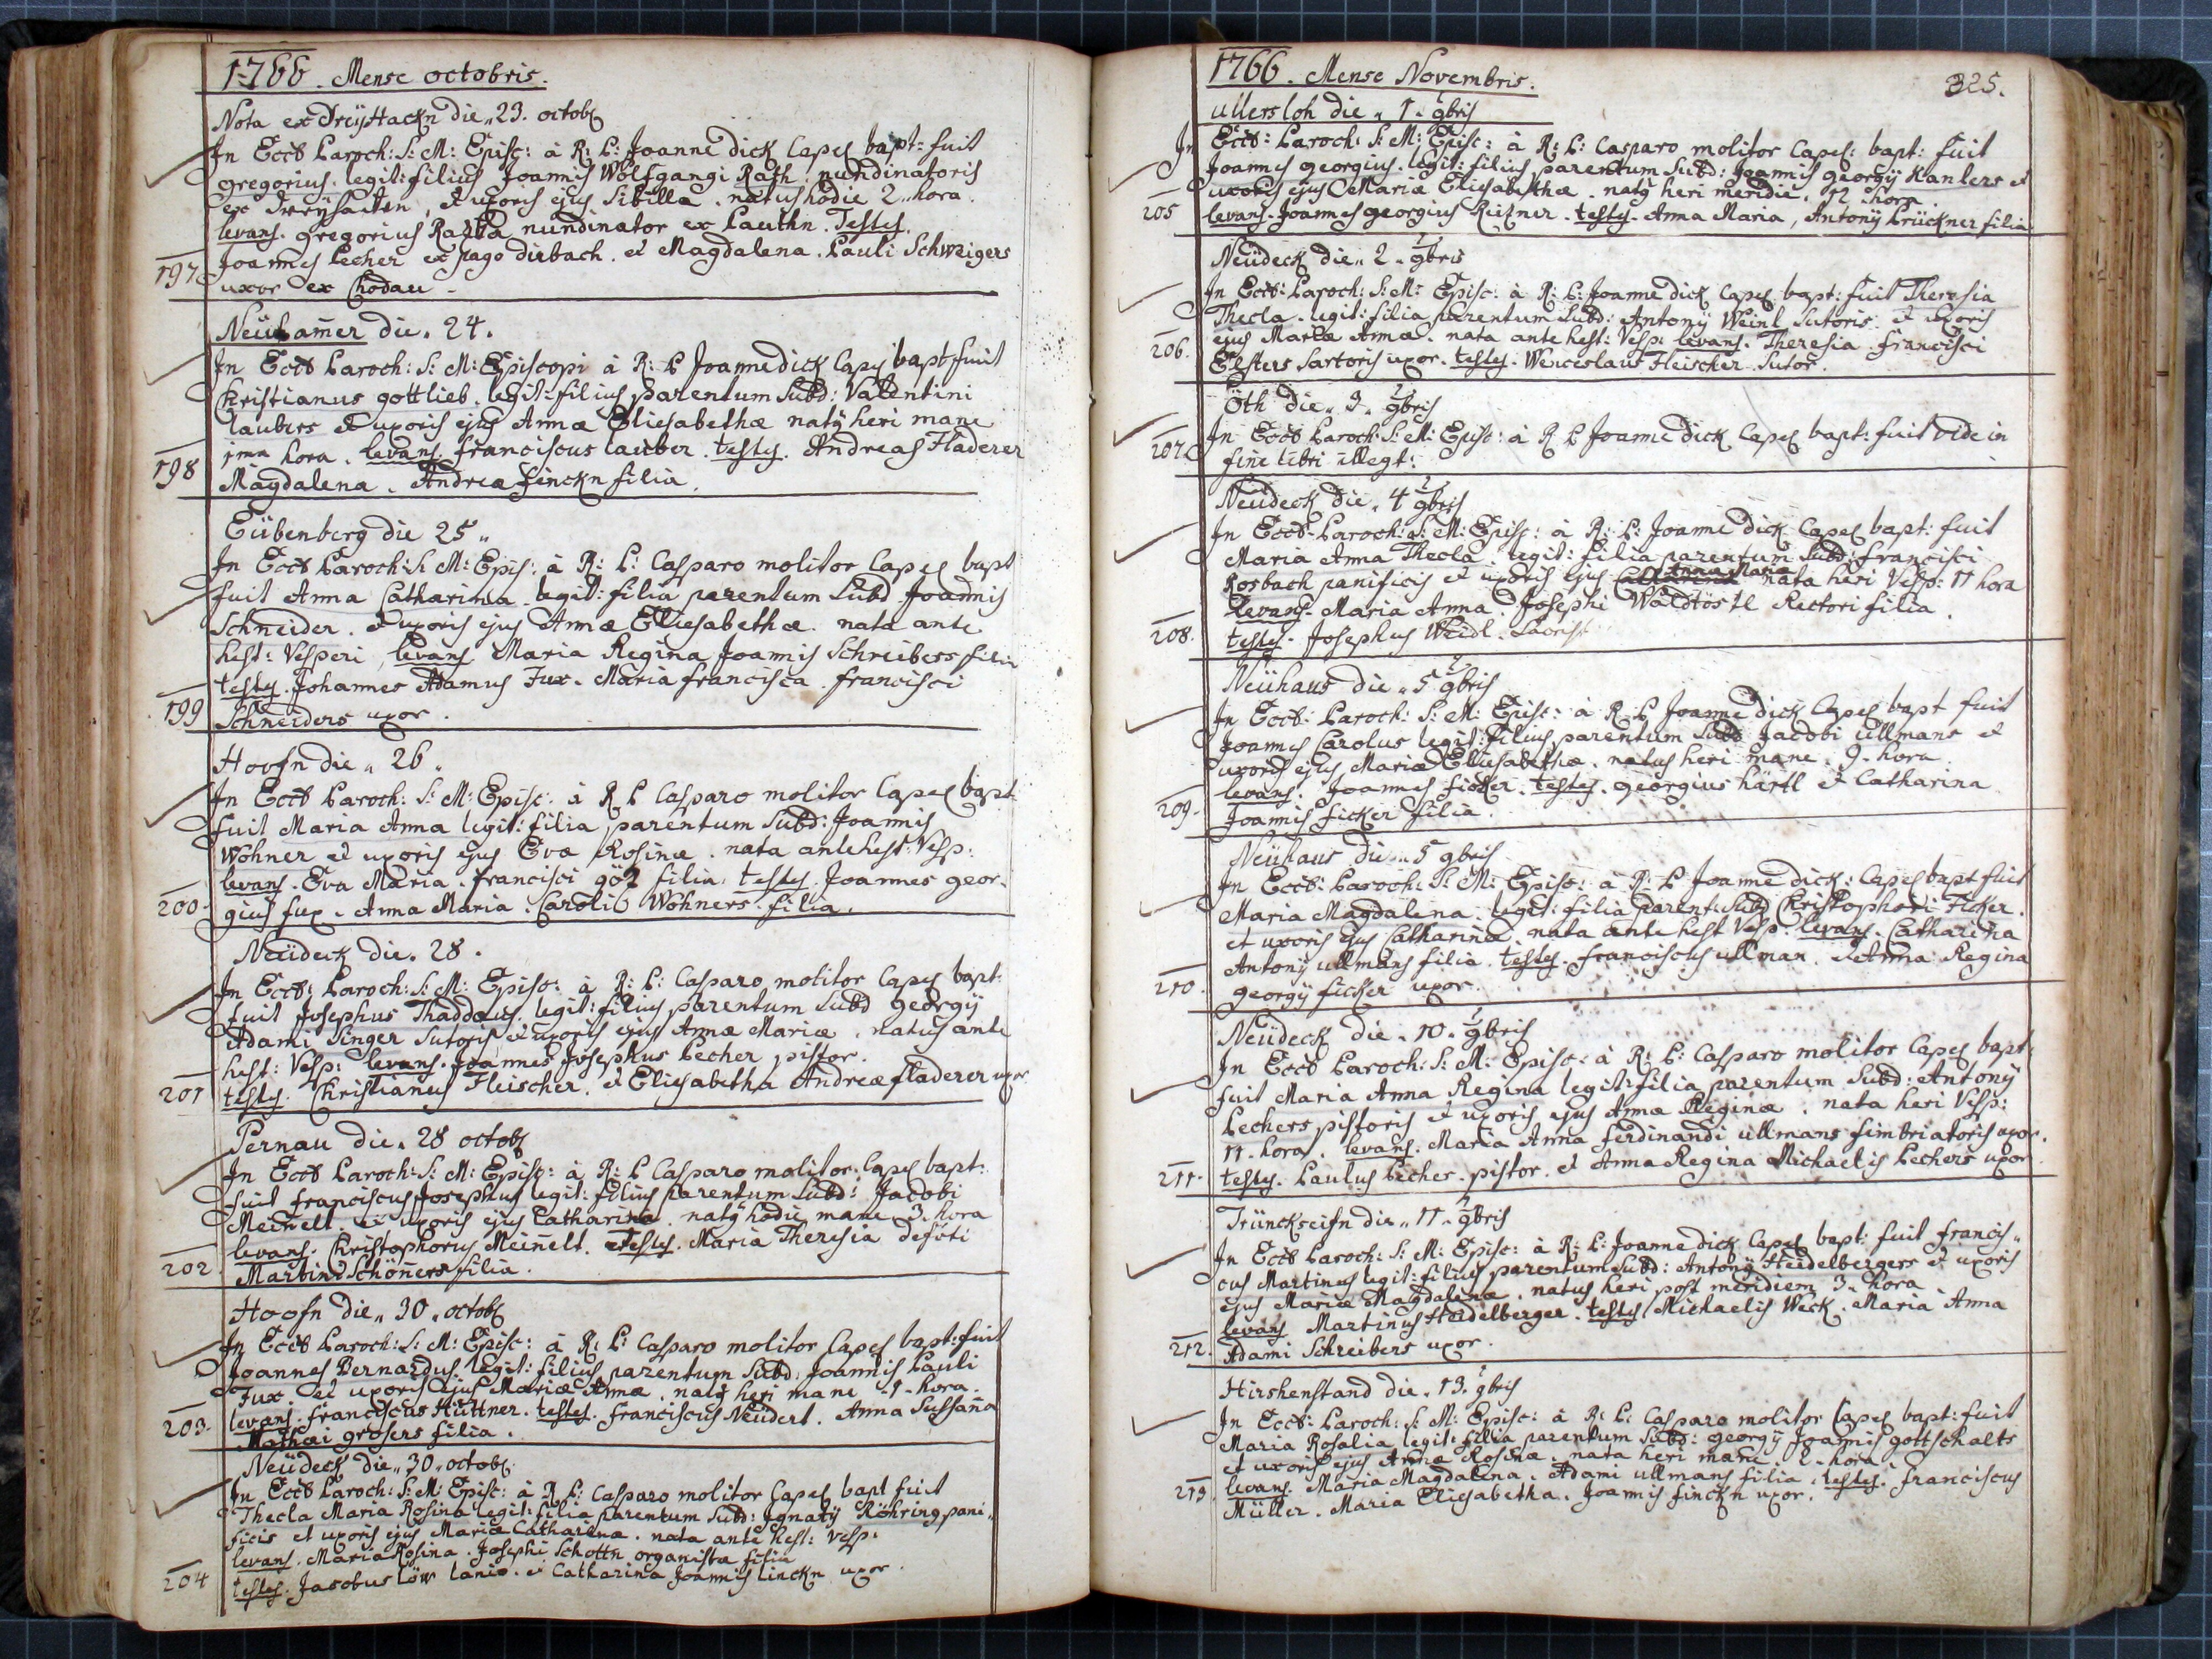 1766. Mense octobris.
Nota ex Dreyhackn die 23. octob
In Eccl Paroch: S: M: Episc: à R: P: Joanne dick Capel bapt: fuit
gregorius. legit: filius Joannis Wolfgangi Rath nundinatoris
ex, et uxoris ejus Sibilla. natus hodie 2 hora.
levans. gregorius nundinator ex Lauthn. Testes.
Joannes Pecher ex pago dirbach. et Magdalena. Pauli Schweigers
197
uxor ex Chodau
Neuhamer die. 24.
In Eccl Paroch: S: M: Episcopi à R: P Joanne dick Capel bapt fuit
Christianus gottlieb. legit: filius parentum Subd: Valentini
laubers et uxoris ejus Annæ Eliesabethæ naty heri mane
jma hora. levans. franciscus lauber. testes. Andreas Fladerer
198
Magdalena. Andrea finckn filia.
Eübenberg die 25.
In Eccl Paroch: S M: Epis: à R: P: Casparo molitor Capel bapt
fuit Anna Catharina. legit: filia parentum Subd Joannis
Schneider. et uxoris ejus Annæ Elliesabethæ. nata ante
hest: Vesperi, levans Maria Regina Joannis Schreibers filia
testes. Johannes Adamus Fux. Maria francisca. francisci
199
Schneiders uxor.
Hoofn die 26.
In Eccl Paroch: S: M: Episc: à R P Casparo molitor Capel bapt:
fuit Maria Anna legit: filia parentum Subd: Joannis
Wohner et uxoris ejus Evæ Rosinæ. nata antehest: Vesp:
levans. Eva Maria. francisci götz filia, testes. Joannes geor-
200
gius fux. Anna Maria. Caroli Wohners. filia.
Neüdeck die. 28.
In Eccl: Paroch: S: M: Episc: à R: P: Casparo molitor Capel bapt:
fuit Josephus Thaddæus. legit: filius parentum Subd georgÿ
Adami Singer Sutoris et uxoris ejus Annæ Mariæ. natus ante
hest: Vesp: levans. Joannes Josephus Pecher pistor.
201
testes. Christianus Fleischer. et Eliesabetha Andreæ fladerer uxor
Pernau die. 28 octob
In Eccl Paroch: S: M: Episc: à R: P Casparo molitor. Capel bapt:
fuit franciscus Josephus legit: filius parentum Subd: Jacobi
Meinelt. et uxoris ejus Catharina. naty hodie mane 3. hora
levans. Christophorus Meinelt. testes. Maria Theresia defōti
202
Martini Schöners filia.
Hoofn die 30. octob
In Eccl Paroch: S: M: Episc: à R: P: Casparo molitor Capel bapt: fuit
Joannes Bernardus. legit: filius parentum Subd. Joannis Pauli
Fux. et uxoris ejus Mariæ Annæ. naty heri mane 1. hora.
levans. franciscus Hüttner. testes. franciscus Neüdert. Anna Sussana
203.
Mathæi grosers filia.
Neüdeck die 30. octob
In Eccl: Paroch: S: M: Episc: à R P: Casparo molitor Capel bapt fuit
Thecla Maria Rosina legit: filia parentum Subd: Ignatÿ Röhring pani-
ficis et uxoris ejus Mariæ Catharina. nata ante hest: vesp:
levans. Maria Rosina. Josephi Schottn organista filia
204
testes. Jacobus löw lanio. et Catharina Joannis linckn uxor.
1766. Mense Novembris.
325.
ullersloh die 1. 9bris
In Eccl: Paroch: S: M: Episc: à R: P: Casparo molitor Capel: bapt: fuit
Joannes georgius. legit: filius parentum Subd: Joannis georgÿ Kanlers et
uxoris ejus Mariæ Eliesabethæ. naty heri meridie. 12 hora.
205
levans. Joannes georgius Rießner. testes. Anna Maria, Antonÿ Brückner filia
Neüdeck die 2. 9bris
In Eccl: Paroch: S: M: Episc: à R: P: Joanne dick Capel bapt: fuit Theresia
Thecla. legit: filia parentum Subd: Antonÿ Weinl Sutoris. et uxoris
ejus Mariæ Annæ. nata ante hest: Vesp: levans. Theresia. francisci
206.
Elsters Sartoris uxor. testes. Wenceslaus Fleischer Sutor.
Öth die 3. 9bris
207.
In Eccl Paroch: S: M: Episc: à R P Joanne dick Capel bapt: fuit vide in
fine libri illegt:
Neüdeck die. 4 9bris
In Eccl: Paroch: S: M: Episc: à R: P: Joanne dick Capel bapt: fuit
Maria Anna Thecla legit: filia parentum Subd: francisci
Rosbach panificis et uxoris ejus Catharina Anna Maria nata heri Vesp: 11 hora
levans. Maria Anna. Josephi Waldtöstl Rectori filia.
208.
testes. Josephus Weidl.
Neühaus die 5 9bris
In Eccl: Paroch: S: M: Episc: à R: P Joanne dick Capel bapt fuit
Joannes Carolus legit: filius parentum Subd Jacobi Ullmans et
uxoris ejus Mariæ Elliesabethæ. natus heri mane. 9. hora
levans. Joannes ficker. testes. georgius härtl et Catharina
209.
Joannis ficker filia.
Neühaus die 5 9bris
In Eccl: Paroch: S: M: Episc: à R: P Joanne dick: Capel bapt fuit
Maria Magdalena. legit: filia parent: Subd Christophori Ficker.
et uxoris ejus Catharinæ. nata ante hest Vesp: levans. Catharina
Antonÿ ullmans filia. testes. franciscus ullman. et Anna Regina
210.
georgÿ ficker uxor.
Neüdeck die. 10. 9bris
In Eccl Paroch: S: M: Episc: à R: P: Casparo molitor Capel bapt:
fuit Maria Anna Regina legit: filia parentum Subd: Antonÿ
Pechers pistoris et uxoris ejus Annæ Reginæ. nata heri Vesp:
11. hora. levans. Maria Anna ferdinandi ullmans fimbriatoris uxor.
211.
testes. Paulus Pecher. pistor. et Anna Regina Michaelis Pechers uxor
Trünckseifn die 11. 9bris
In Eccl Paroch: S: M: Episc: à R: P: Joanne dick Capel bapt: fuit francis-
cus Martinus legit: filius parentum Subd: Antonÿ Heidelbergers et uxoris
ejus Mariæ Magdalenæ. natus heri post meridiem 3. hora
levans Martinus Heidelberger. testes Michaelis Weck. Maria Anna
212.
Adami Schreibers uxor.
Hirshenstand die. 13. 9bris
In Eccl: Paroch: S: M: Episc: à R: P: Casparo molitor Capel bapt: fuit
Maria Rosalia legit: filia parentum Subd: georgÿ Joannis gottschalts
et uxoris ejus Annæ Rosinæ. nata heri mane. 2. hora
213.
levans. Maria Magdalena. Adami ullmans filia. testes. franciscus
Müller. Maria Eliesabetha. Joannis finckn uxor.